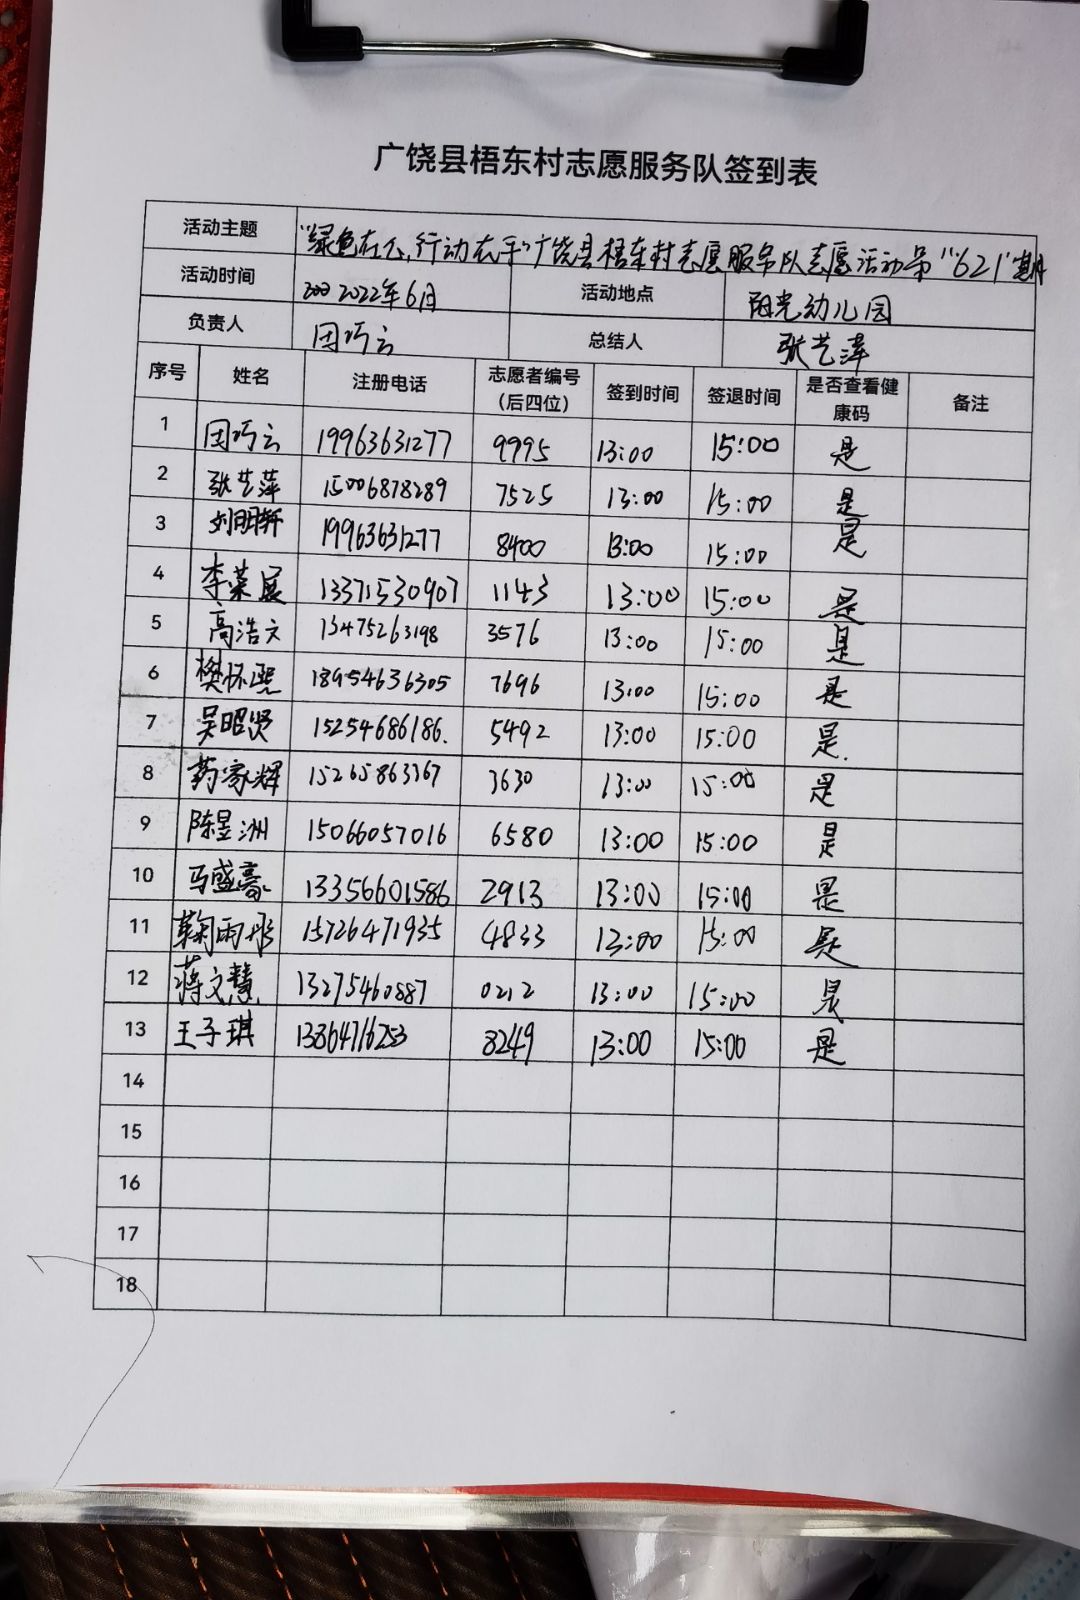 广饶县梧东村志愿服务队签到表
活动主题 "绿色在心,行动在手"广饶县梧东村志愿服务队志愿活动第"621"期
活动时间 2022年6月 活动地点 阳光幼儿园
负责人 团巧云 总结人 张艺萍
序号 姓名 注册电话 志愿者编号(后四位) 签到时间 签退时间 是否查看健康码 备注
1 团巧云 19963631277 9995 13:00 15:00 是
2 张艺萍 15006878289 7525 13:00 15:00 是
3 刘明轩 19963631277 8400 13:00 15:00 是
4 李荣展 13371530907 1143 13:00 15:00 是
5 高浩文 13475263198 3576 13:00 15:00 是
6 樊怀 18954636305 7696 13:00 15:00 是
7 吴昭贤 15254686186. 5492 13:00 15:00 是.
8 药家辉 15265863367 3630 13:00 15:00 是
9 陈昱洲 15066057016 6580 13:00 15:00 是
10 马盛豪 13356601586 2913 13:00 15:00 是
11 鞠雨彤 15726471935 4833 13:00 15:00 是
12 蒋文慧 13275460887 0212 13:00 15:00 是
13 王子琪 13864716253 8249 13:00 15:00 是
14
15
16
17
18